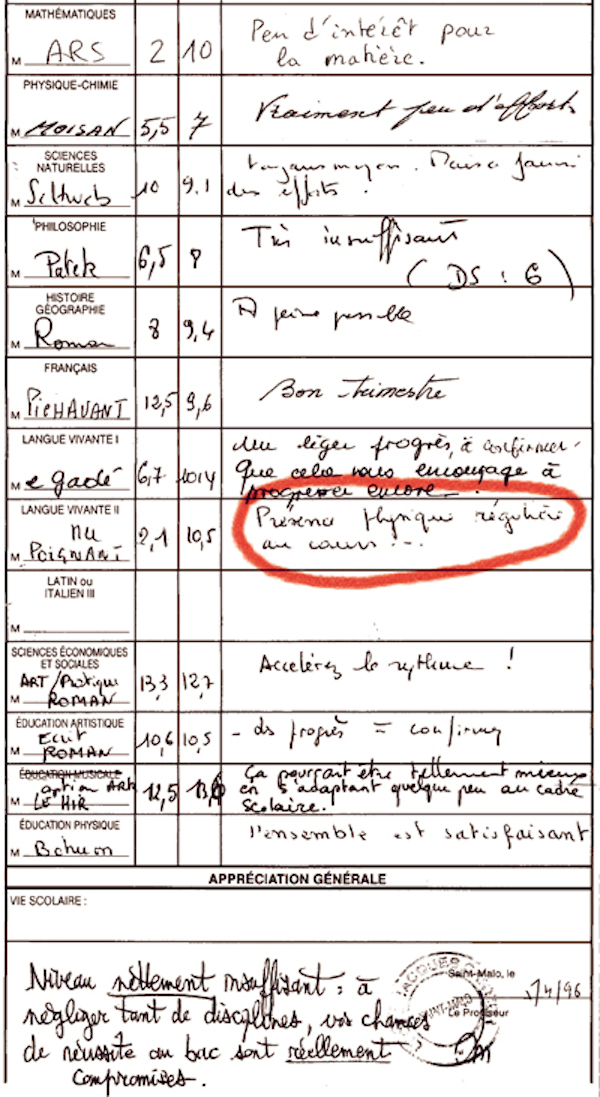 MATHÉMATIQUES
M ARS 2 10 Peu d'intérêt pour
la matière.
PHYSIQUE-CHIMIE
M MOISAN 5,5 7 Vraiment peu d'efforts
SCIENCES
NATURELLES
M Schweb 10 9.1 toujours moyen. Mais a fourni
des efforts.
PHILOSOPHIE
M Patek 6,5 8 Très insuffisant
(DS : 6)
HISTOIRE
GÉOGRAPHIE
M Roman 8 9,4 A peine passable
FRANÇAIS
M PICHAVANT 12,5 9,6 Bon trimestre
LANGUE VIVANTE I
M e gadé 6,7 10,4 Un léger progrès, à confirmer.
Que cela vous encourage à
progresser encore.
LANGUE VIVANTE II
M POIGNANT 2,1 10,5 Présence physique régulière
au cours...
LATIN ou
ITALIEN III
M
SCIENCES ÉCONOMIQUES
ET SOCIALES
ART/Pratique
M ROMAN 13,3 12,7 Accélérez le rythme !
ÉDUCATION ARTISTIQUE
Ecrit
M ROMAN 10,6 10,5 - des progrès = confirmer
ÉDUCATION MUSICALE
option ART
M LE HIR 12,5 Ça pourrait être tellement mieux
en s'adaptant quelque peu au cadre
scolaire.
ÉDUCATION PHYSIQUE
M l'ensemble est satisfaisant
APPRÉCIATION GÉNÉRALE
VIE SCOLAIRE :
Niveau nettement insuffisant : à
négliger tant de disciplines, vos chances
de réussite au bac sont réellement
compromises.
JACQUES
Saint-Malo, le /4/96
Le Proviseur